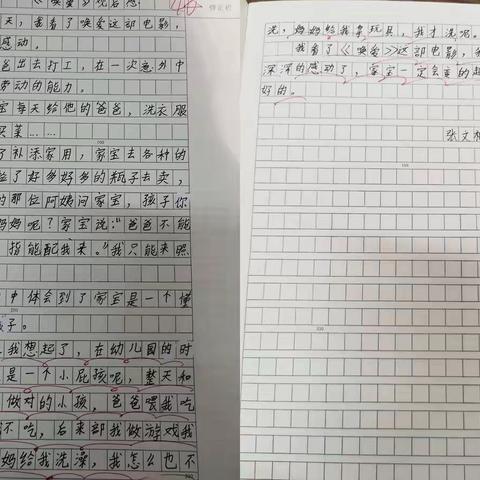 《唤爱》观后感
天，我看了唤爱这部电影，
感动。
爸出去打工，在一次意外中
劳动的能力。
宝每天给他的爸爸，洗衣服
买菜……
了补添家用，家宝去各种的
捡了好多好多的瓶子去卖，
的那位阿姨问家宝，孩子你
妈妈呢？家宝说：“爸爸不能
，指能配我来。”我只能来照
中体会到了家宝是一个懂
孩子。
我想起了，在幼儿园的时
是一个小屁孩呢，整天和
做对的小孩，爸爸喂我吃
不吃，后来部我做游戏我
妈给我洗澡，我怎么也不
洗，妈妈给我拿玩具，我才洗吗。
我看了《唤爱》这部电影，我
深深的感动了，家宝一定会变的越
好的。
张文